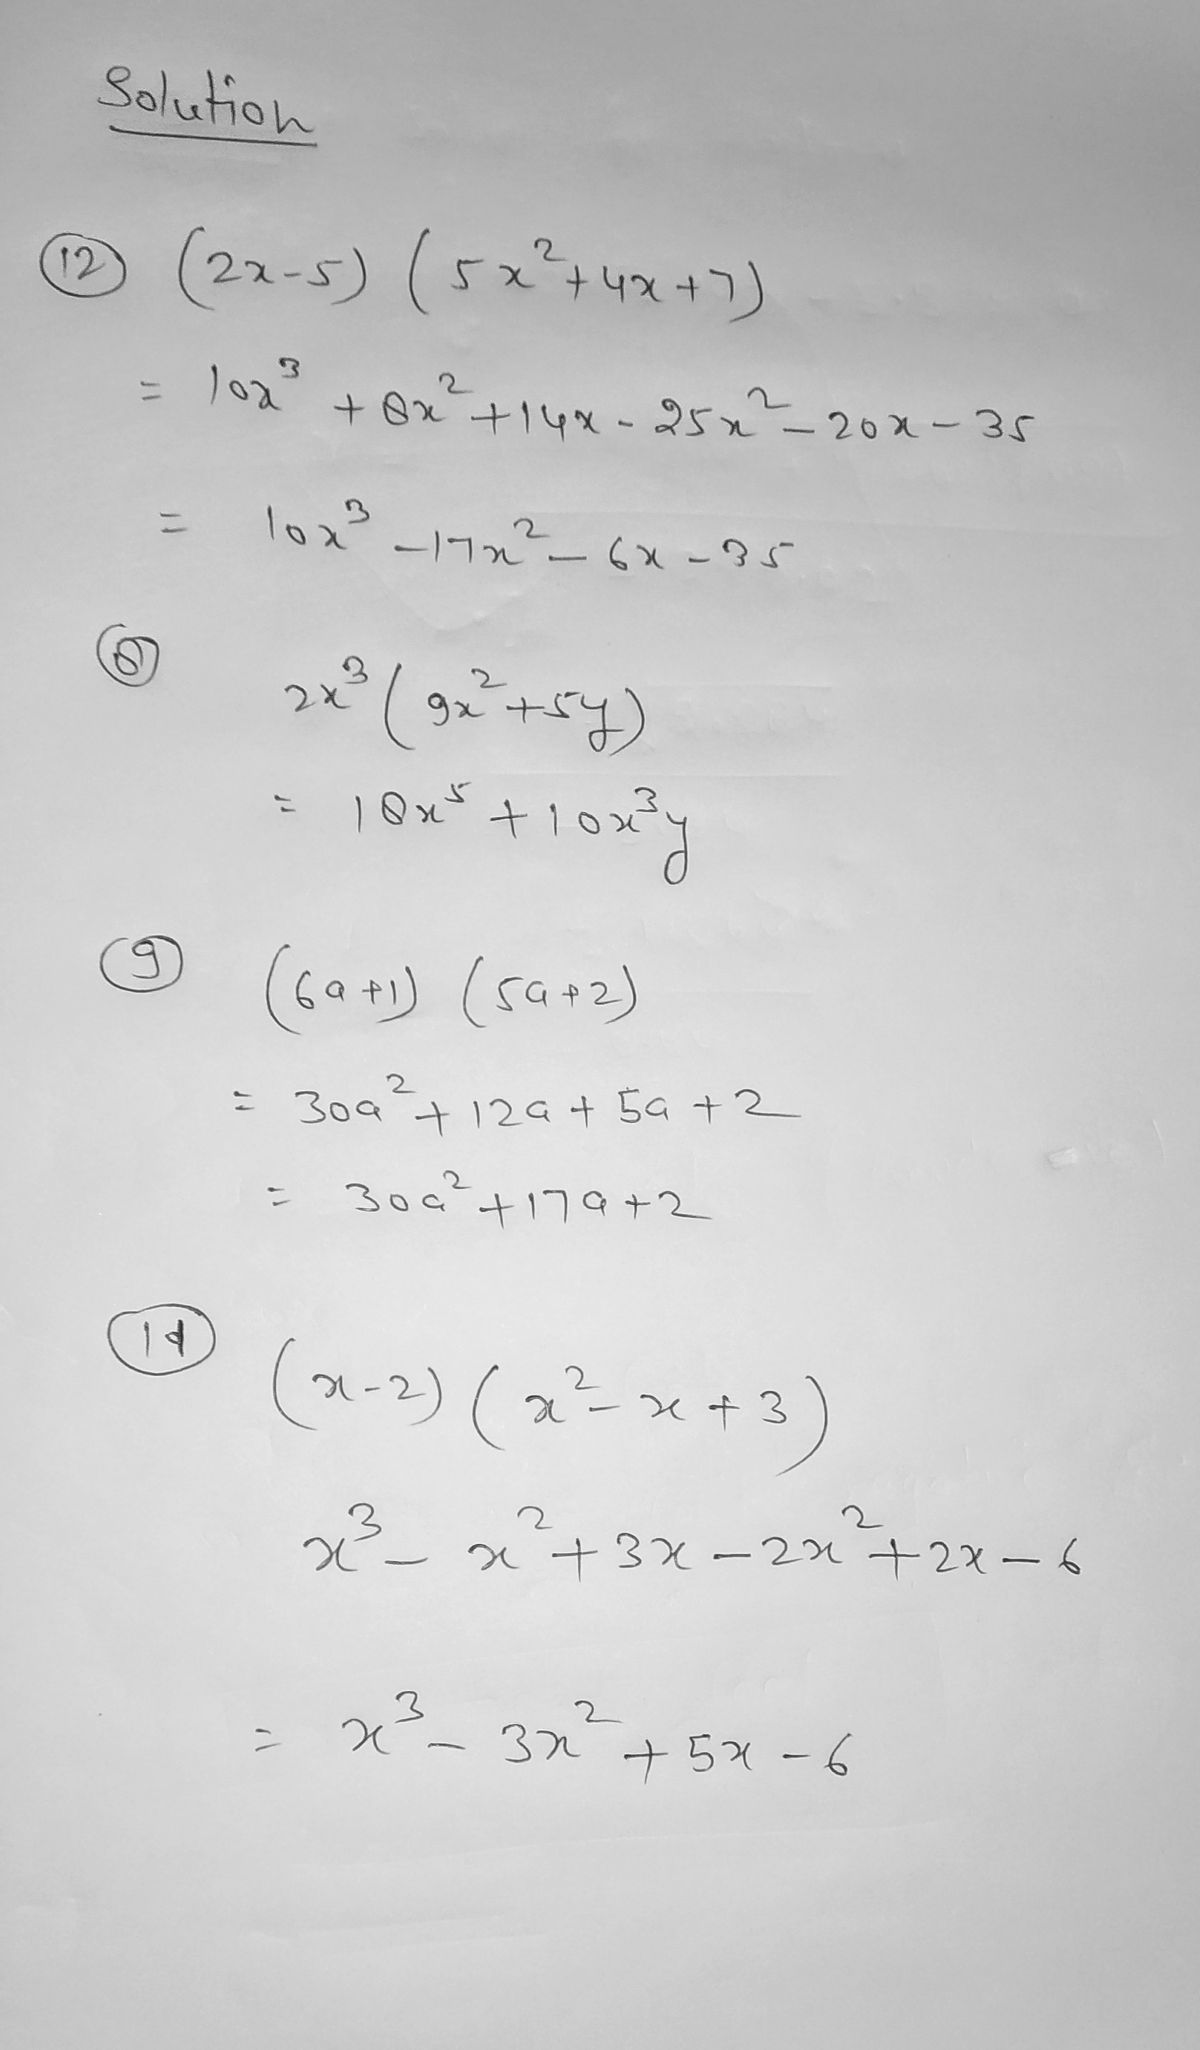 Solution
12 (2x-5) (5x²+4x+7)
= 10x³ + 8x² + 14x - 25x² - 20x - 35
= 10x³ - 17x² - 6x - 35
2x³ (9x² + 5y)
= 18x⁵ + 10x³y
9 (6a+1) (5a+2)
= 30a² + 12a + 5a + 2
= 30a² + 17a + 2
(x-2) (x² - x + 3)
x³ - x² + 3x - 2x² + 2x - 6
= x³ - 3x² + 5x - 6